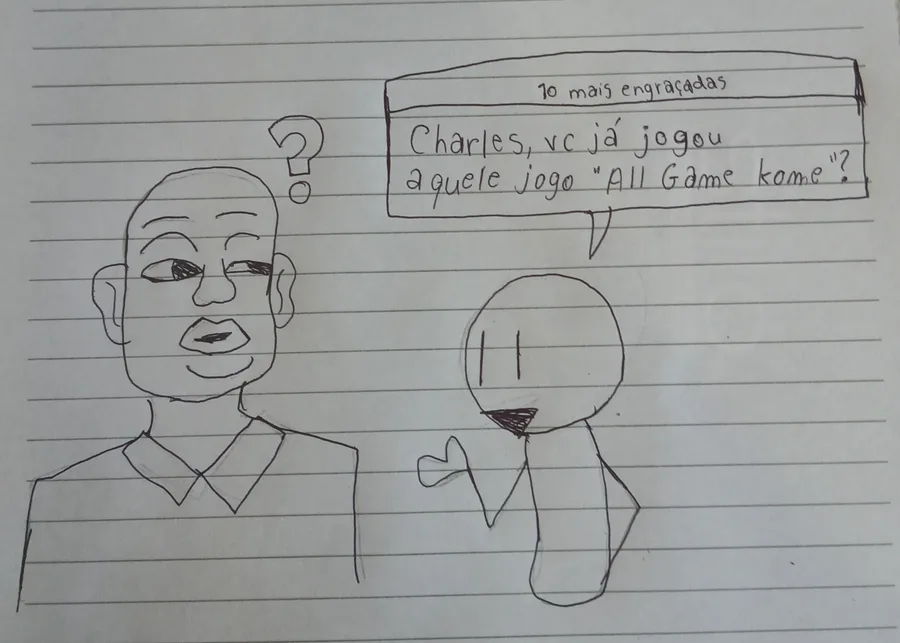 ?
10 mais engraçadas
Charles, vc já jogou
aquele jogo "All Game kome"?